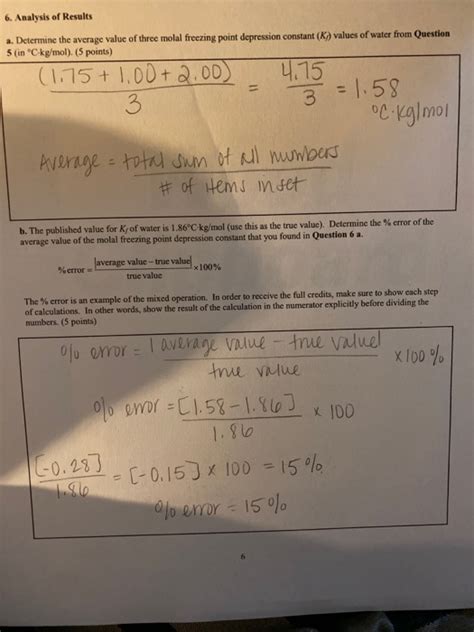 6. Analysis of Results
a. Determine the average value of three molal freezing point depression constant (Kf) values of water from Question
5 (in °C·kg/mol). (5 points)
(1.75 + 1.00 + 2.00) / 3 = 4.75 / 3 = 1.58
°C·kg/mol
Average = total sum of all numbers
# of items in set
b. The published value for Kf of water is 1.86°C·kg/mol (use this as the true value). Determine the % error of the
average value of the molal freezing point depression constant that you found in Question 6 a.
% error = |average value – true value| / true value ×100%
The % error is an example of the mixed operation. In order to receive the full credits, make sure to show each step
of calculations. In other words, show the result of the calculation in the numerator explicitly before dividing the
numbers. (5 points)
% error = | average value - true value| / true value × 100 %
% error = [1.58 - 1.86] / 1.86 × 100
[-0.28] / 1.86 = [-0.15] × 100 = 15%
% error = 15%
6